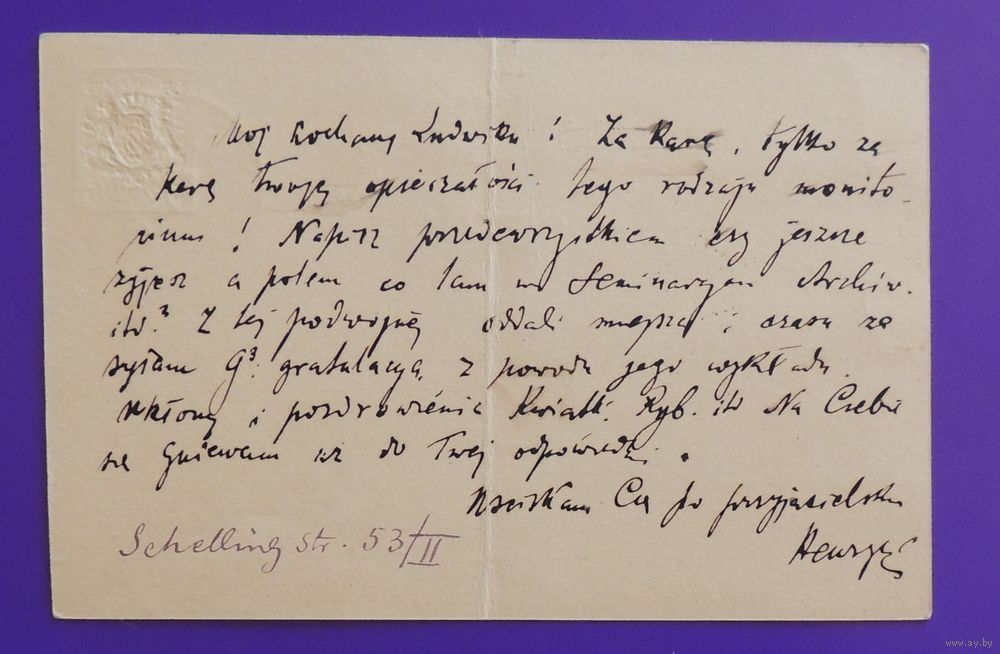 Mój Kochany Ludwiku! Za Karę, tylko za
Karę Twojej opieszałości tego rodzaju monito-
rium! Napisz przedewszystkiem czy jeszcze
żyjesz a potem co tam w Seminaryum Archiw.
itd.? Z tej podwójnej oddali miejsca i czasu za
syłam G³. gratulacyą z powodu jego wykładu.
Ukłony i pozdrowienia Kwiatk. Ryb. itd Na Ciebie
się gniewam aż do Twej odpowiedzi.
Uściskam Cię po przyjacielsku
Henryk
Schelling str. 53/II
www.ay.by